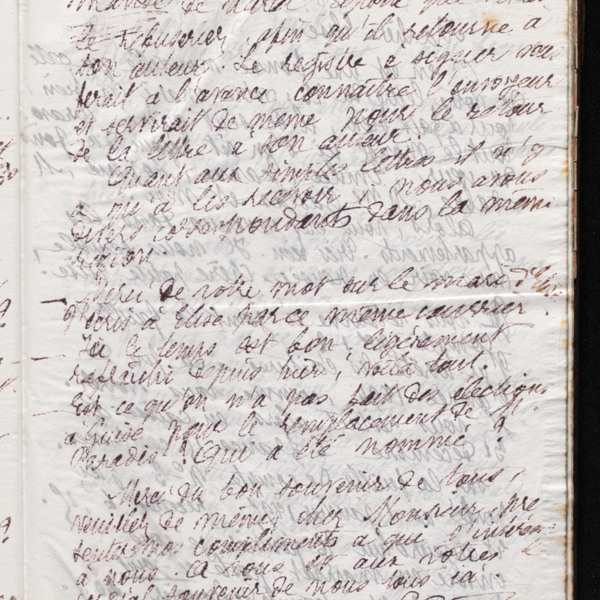 de Ribuserier, afin qu'il retourne à
son auteur. Le registre à signer vous
ferait à l'avance connaître l'envoyeur
et servirait de même pour le retour
de la lettre à son auteur.
Quant aux simples lettres et n'y
a qu'à les recevoir, nous avons
correspondants dans la même
région.
Merci de votre mot sur le mari d'
J'écris à Elise par ce même courrier.
Ici le temps est bon légèrement
rafraîchi depuis hier, voilà tout.
Est ce qu'on n'a pas fait des élections
à Guise pour le remplacement de M.
Paradis ? Qui a été nommé ?
Merci du bon souvenir de tous,
veuillez de même, cher Monsieur, pré
senter mes compliments à qui s'intéresse
à nous. A vous et aux vôtres
cordial souvenir de nous tous ici.